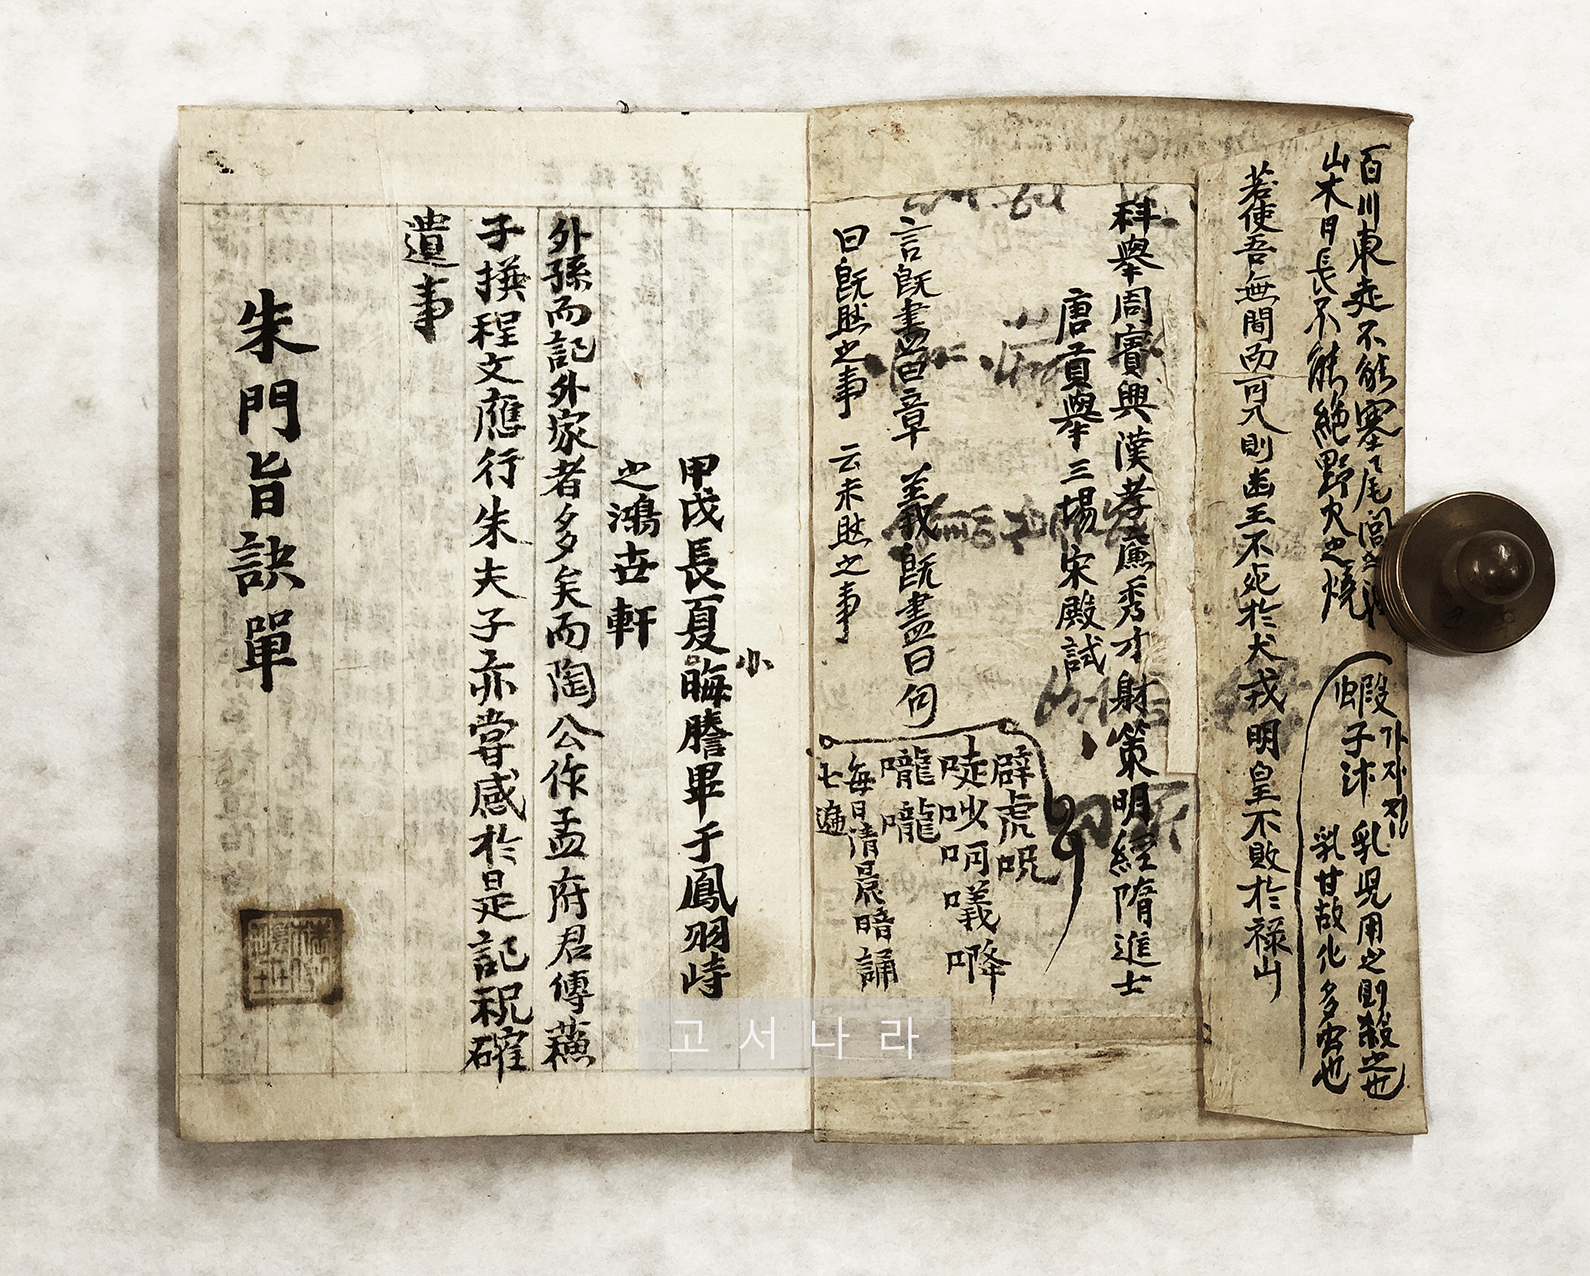 百川東走不能塞尾閭之
山木日長不能絶野火之燒
蝦子沭 乳見用之則殺之也
가자진
乳甘故化多害也
若使吾無間而可入則幽王不死於犬戎明皇不敗於祿山
科擧周賓興漢孝廉秀才射策明經隋進士
唐貢擧三場宋殿試
言旣書首章 義旣盡曰何
曰旣然之事 云未然之事
辟虎呪
唗吙呵㘁㖓
嚨嚨
每日淸晨暗誦
七遍
小
甲戌長夏晦謄畢于鳳羽峙
之鴻世軒
外孫而記外家者多矣而陶公作孟府君傳蘓
子撰程文應行朱夫子亦嘗感於是記祝確
遺事
朱門旨訣單
고서나라